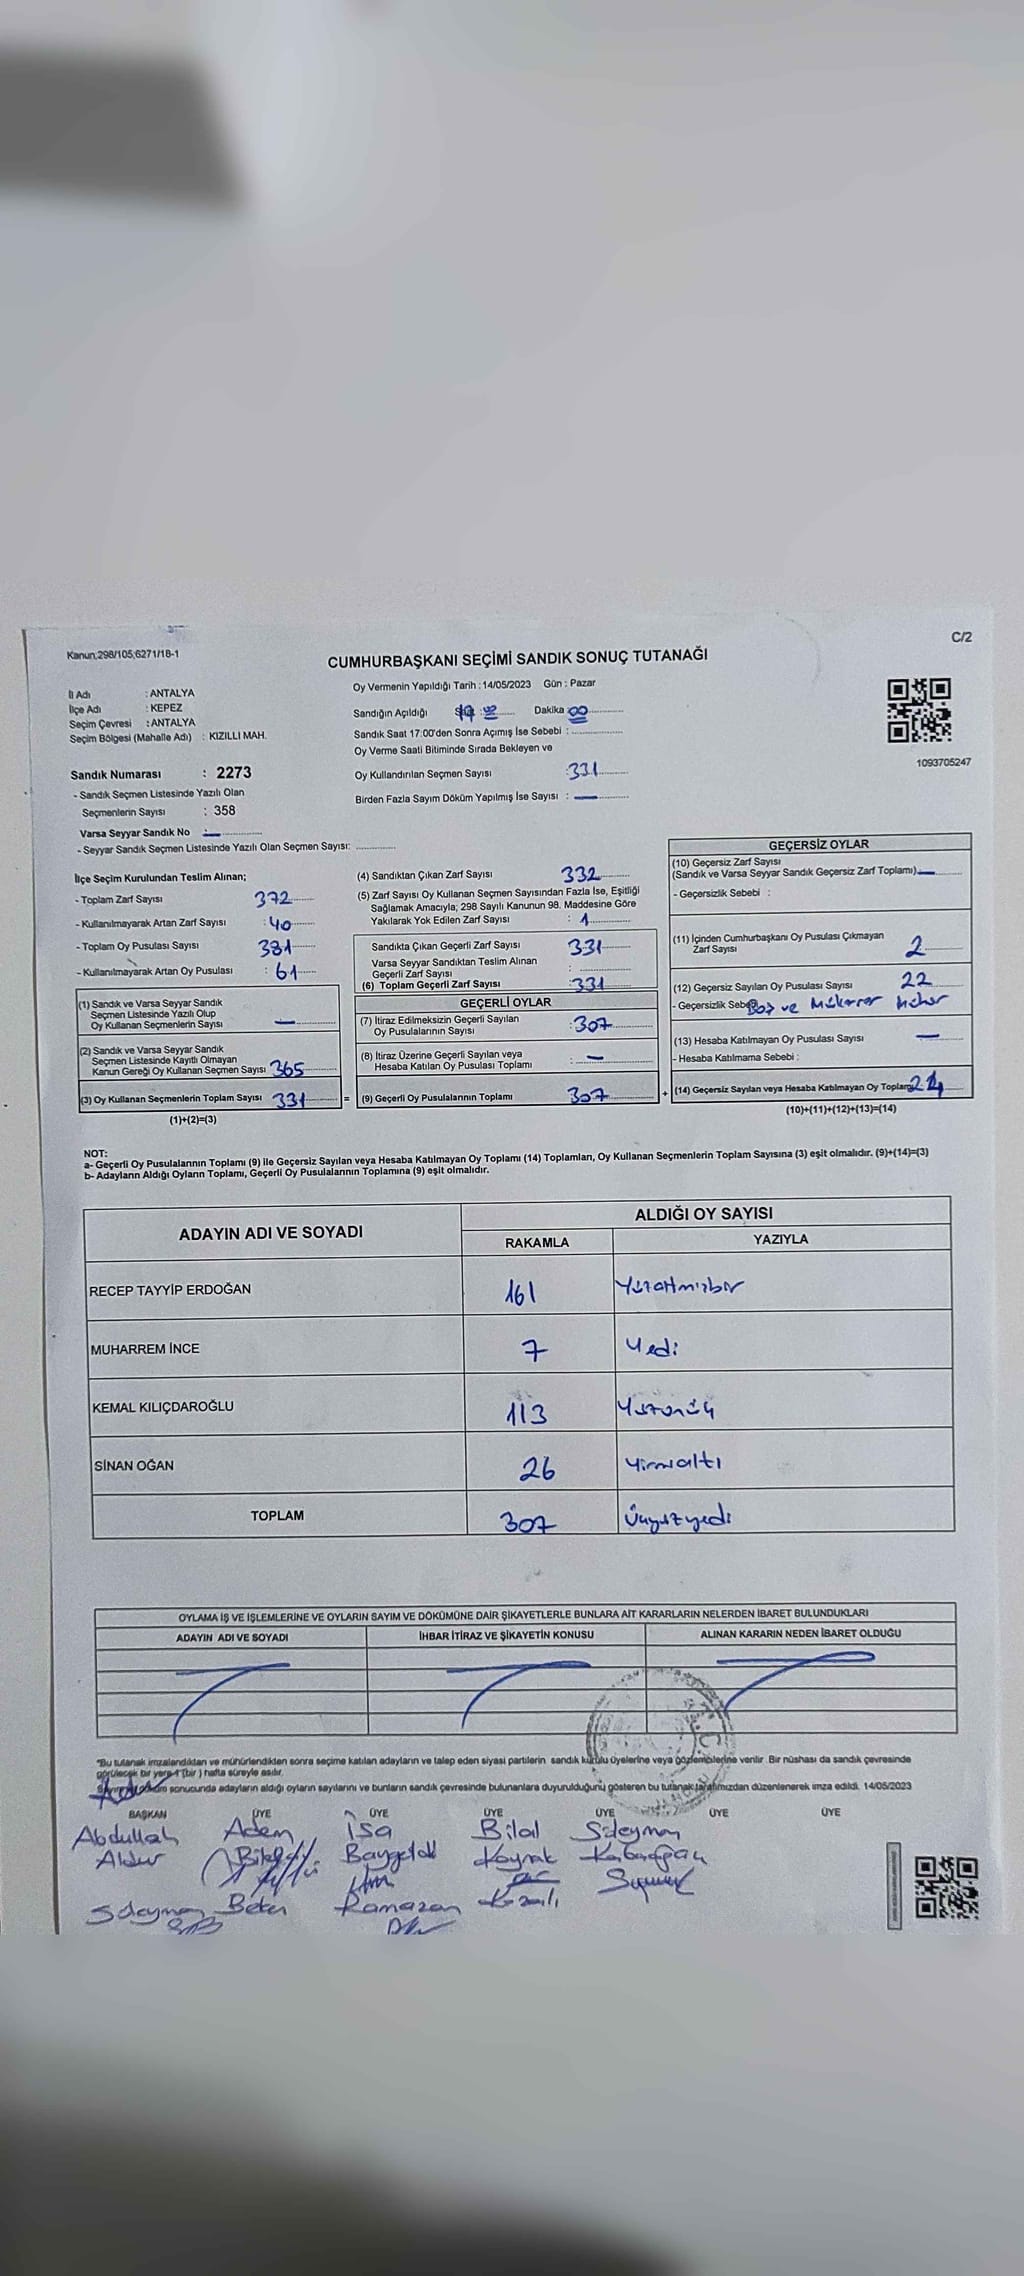 C/2
Kanun;298/105;6271/18-1
CUMHURBAŞKANI SEÇİMİ SANDIK SONUÇ TUTANAĞI
İl Adı : ANTALYA
İlçe Adı : KEPEZ
Seçim Çevresi : ANTALYA
Seçim Bölgesi (Mahalle Adı) : KIZILLI MAH.
Sandık Numarası : 2273
- Sandık Seçmen Listesinde Yazılı Olan
Seçmenlerin Sayısı : 358
Varsa Seyyar Sandık No : —
- Seyyar Sandık Seçmen Listesinde Yazılı Olan Seçmen Sayısı:
Oy Vermenin Yapıldığı Tarih : 14/05/2023 Gün : Pazar
Sandığın Açıldığı Dakika 00
Sandık Saat 17:00'den Sonra Açımış İse Sebebi :
Oy Verme Saati Bitiminde Sırada Bekleyen ve
Oy Kullandırılan Seçmen Sayısı : 331
Birden Fazla Sayım Döküm Yapılmış İse Sayısı : —
1093705247
İlçe Seçim Kurulundan Teslim Alınan;
- Toplam Zarf Sayısı 372
- Kullanılmayarak Artan Zarf Sayısı : 40
- Toplam Oy Pusulası Sayısı 381
- Kullanılmayarak Artan Oy Pusulası : 61
(1) Sandık ve Varsa Seyyar Sandık
Seçmen Listesinde Yazılı Olup
Oy Kullanan Seçmenlerin Sayısı : —
(2) Sandık ve Varsa Seyyar Sandık
Seçmen Listesinde Kayıtlı Olmayan
Kanun Gereği Oy Kullanan Seçmen Sayısı : 365
(3) Oy Kullanan Seçmenlerin Toplam Sayısı 331 =
(1)+(2)=(3)
(4) Sandıktan Çıkan Zarf Sayısı 332
(5) Zarf Sayısı Oy Kullanan Seçmen Sayısından Fazla İse, Eşitliği
Sağlamak Amacıyla; 298 Sayılı Kanunun 98. Maddesine Göre
Yakılarak Yok Edilen Zarf Sayısı : 1
Sandıkta Çıkan Geçerli Zarf Sayısı 331
Varsa Seyyar Sandıktan Teslim Alınan
Geçerli Zarf Sayısı :
(6) Toplam Geçerli Zarf Sayısı : 331
GEÇERLİ OYLAR
(7) İtiraz Edilmeksizin Geçerli Sayılan
Oy Pusulalarının Sayısı : 307
(8) İtiraz Üzerine Geçerli Sayılan veya
Hesaba Katılan Oy Pusulası Toplamı : —
(9) Geçerli Oy Pusulalarının Toplamı 307 +
GEÇERSİZ OYLAR
(10) Geçersiz Zarf Sayısı
(Sandık ve Varsa Seyyar Sandık Geçersiz Zarf Toplamı) —
- Geçersizlik Sebebi :
(11) İçinden Cumhurbaşkanı Oy Pusulası Çıkmayan
Zarf Sayısı 2
(12) Geçersiz Sayılan Oy Pusulası Sayısı 22
- Geçersizlik Sebebi Boş ve Mükerrer Mühür
(13) Hesaba Katılmayan Oy Pusulası Sayısı —
- Hesaba Katılmama Sebebi :
(14) Geçersiz Sayılan veya Hesaba Katılmayan Oy Toplamı 24
(10)+(11)+(12)+(13)=(14)
NOT:
a- Geçerli Oy Pusulalarının Toplamı (9) ile Geçersiz Sayılan veya Hesaba Katılmayan Oy Toplamı (14) Toplamları, Oy Kullanan Seçmenlerin Toplam Sayısına (3) eşit olmalıdır. (9)+(14)=(3)
b- Adayların Aldığı Oyların Toplamı, Geçerli Oy Pusulalarının Toplamına (9) eşit olmalıdır.
ADAYIN ADI VE SOYADI ALDIĞI OY SAYISI
RAKAMLA YAZIYLA
RECEP TAYYİP ERDOĞAN 161 Yüzatmışbir
MUHARREM İNCE 7 Yedi
KEMAL KILIÇDAROĞLU 113 Yüzonüç
SİNAN OĞAN 26 Yirmialtı
TOPLAM 307 Üçyüzyedi
OYLAMA İŞ VE İŞLEMLERİNE VE OYLARIN SAYIM VE DÖKÜMÜNE DAİR ŞİKAYETLERLE BUNLARA AİT KARARLARIN NELERDEN İBARET BULUNDUKLARI
ADAYIN ADI VE SOYADI İHBAR İTİRAZ VE ŞİKAYETİN KONUSU ALINAN KARARIN NEDEN İBARET OLDUĞU
*Bu tutanak imzalandıktan ve mühürlendikten sonra seçime katılan adayların ve talep eden siyasi partilerin sandık kurulu üyelerine veya gözlemcilerine verilir. Bir nüshası da sandık çevresinde
görülecek bir yere 1 (bir) hafta süreyle asılır.
döküm sonucunda adayların aldığı oyların sayılarını ve bunların sandık çevresinde bulunanlara duyurulduğunu gösteren bu tutanak tarafımızdan düzenlenerek imza edildi. 14/05/2023
BAŞKAN ÜYE ÜYE ÜYE ÜYE ÜYE ÜYE
Abdullah Adem İsa Bilal Süleyman
Süleyman Beker Ramazan